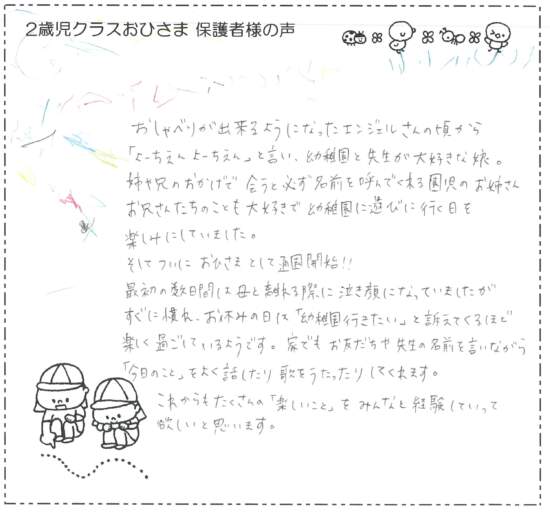 2歳児クラスおひさま 保護者様の声
おしゃべりが出来るようになったエンジェルさんの頃から
「よーちえん よーちえん」と言い、幼稚園と先生が大好きな娘。
姉や兄のおかげで 会うと必ず名前を呼んでくれる園児のお姉さん
お兄さんたちのことも大好きで幼稚園に遊びに行く日を
楽しみにしていました。
そしてついに おひさまとして通園開始!!
最初の数日間は母と離れる際に泣き顔になっていましたが
すぐに慣れ、お休みの日は「幼稚園行きたい」と訴えてくるほど
楽しく過ごしているようです。家でもお友だちや先生の名前を言いながら
「今日のこと」をよく話したり歌をうたったりしてくれます。
これからもたくさんの「楽しいこと」をみんなと経験していって
欲しいと思います。